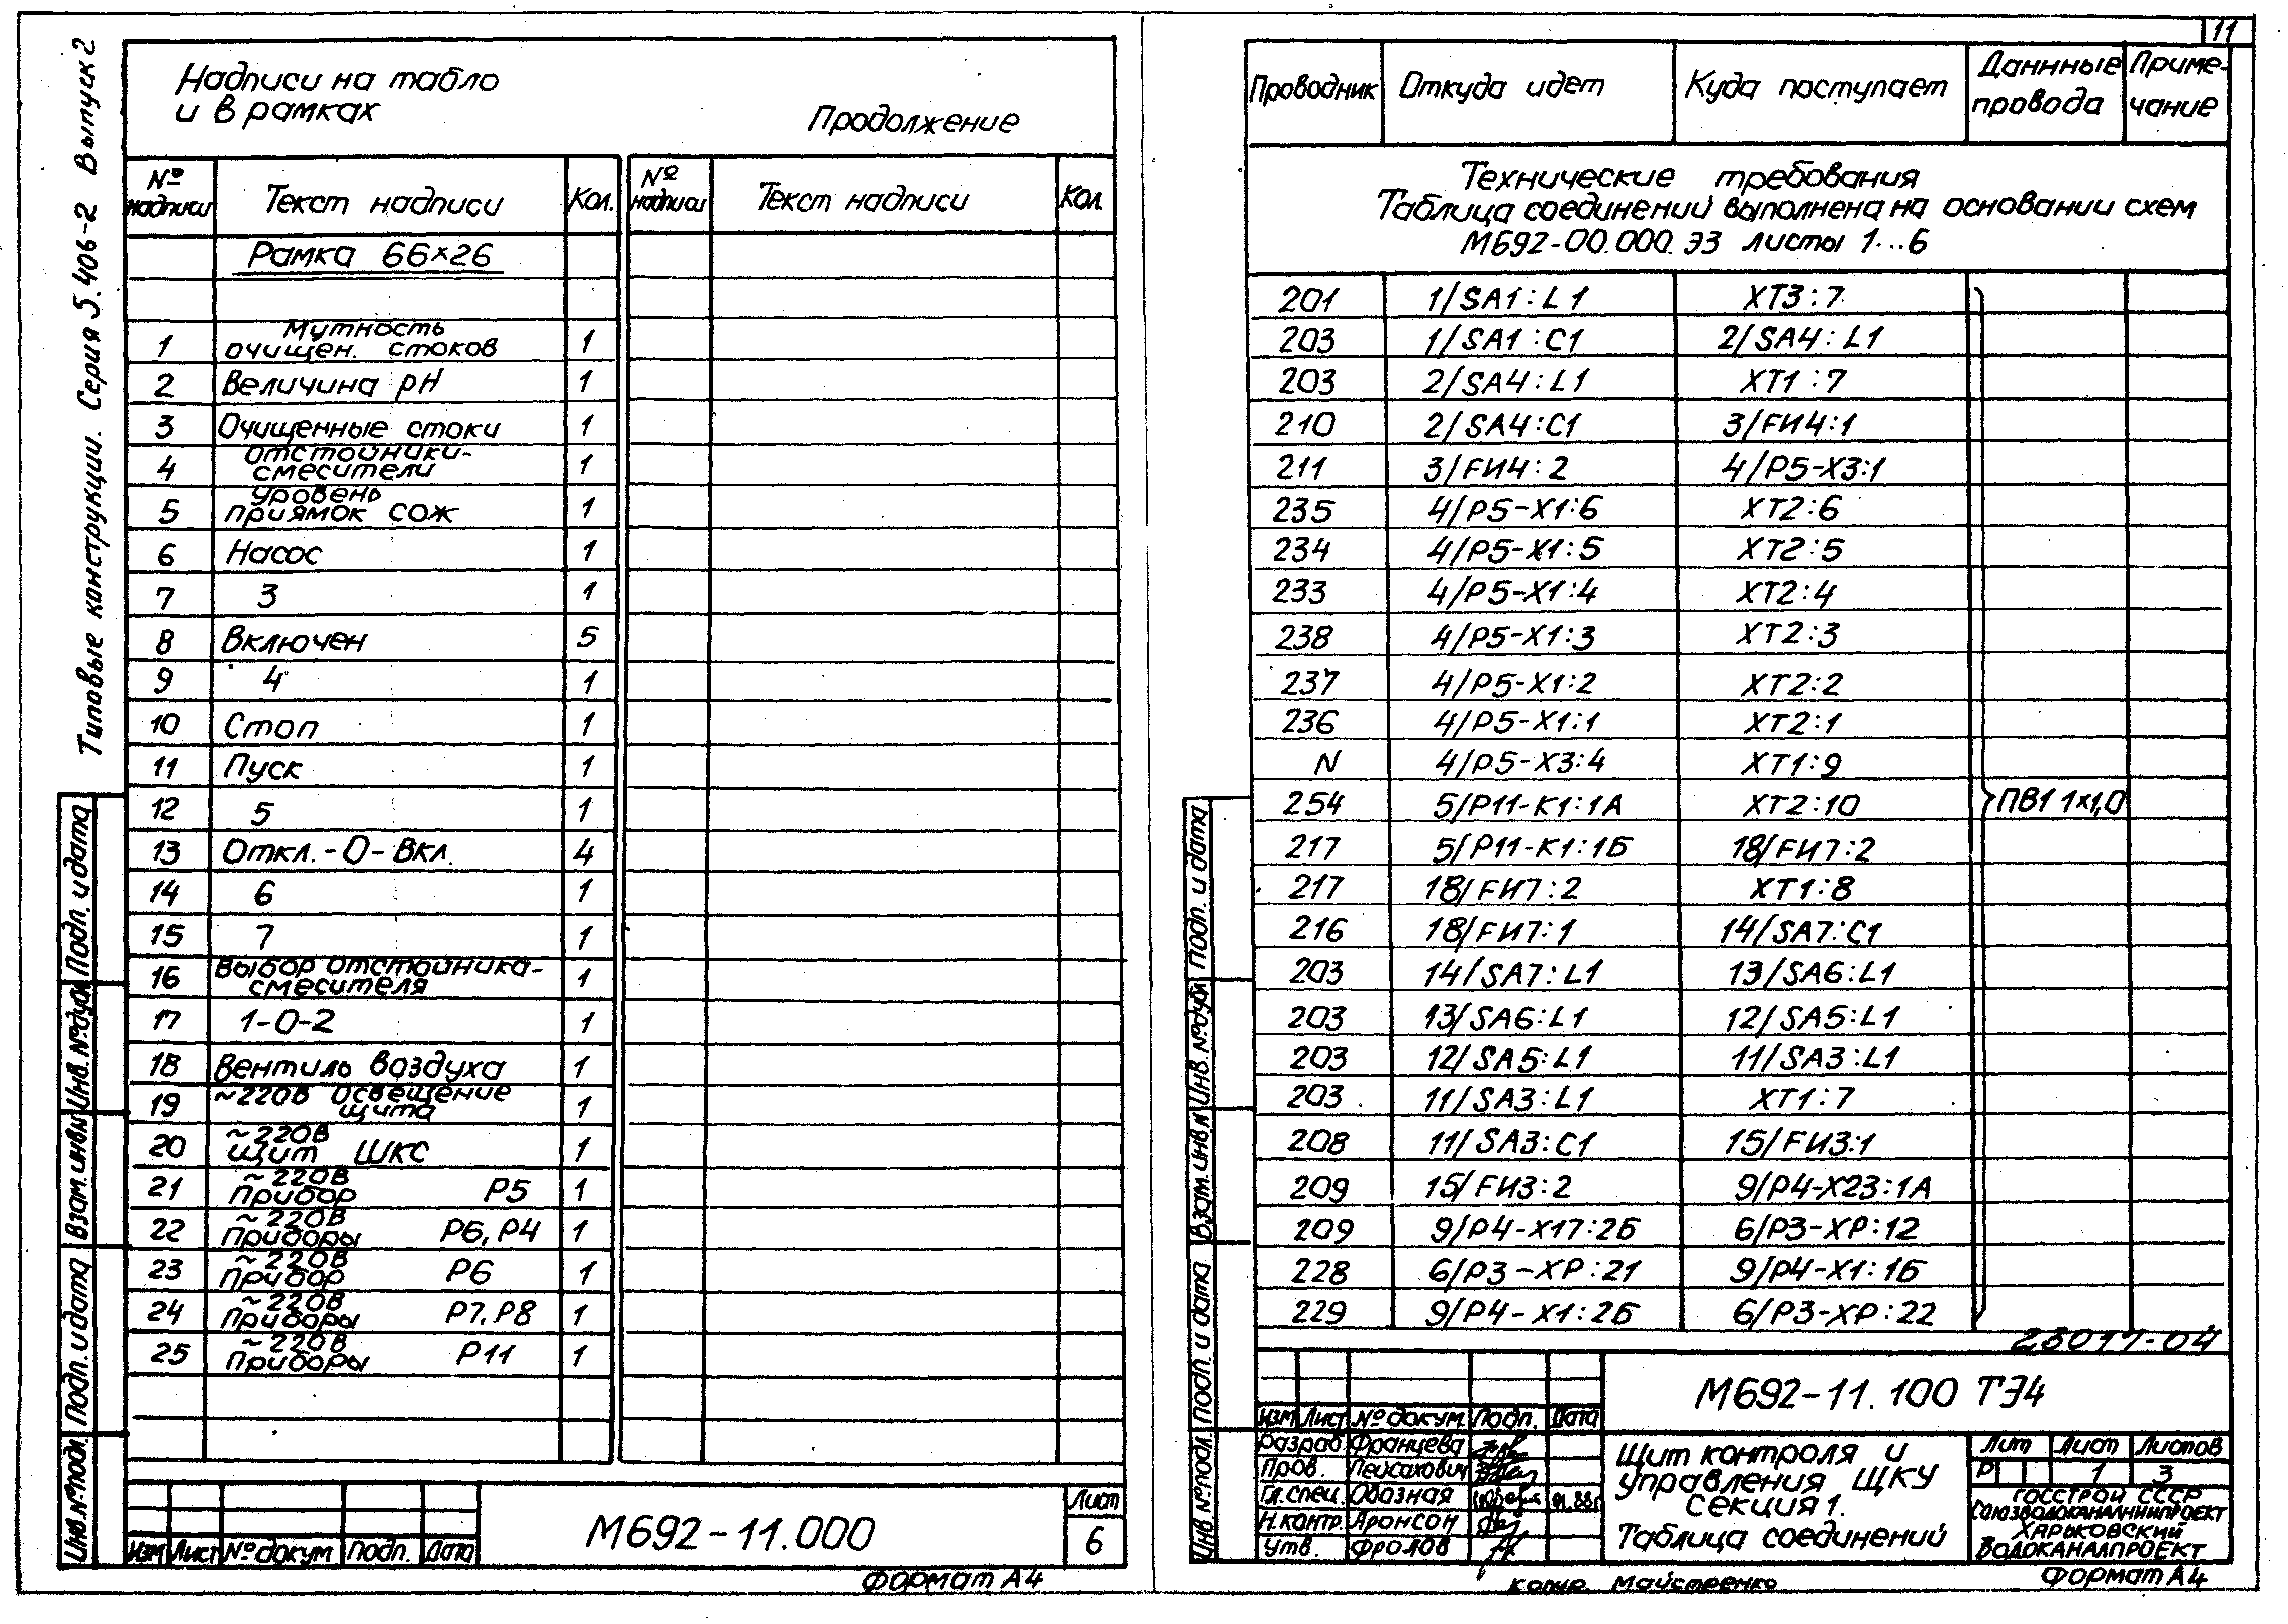 11
Типовые конструкции. Серия 5.406-2 Выпуск 2
Надписи на табло
и в рамках
Продолжение
№ надписи Текст надписи Кол. № надписи Текст надписи Кол.
Рамка 66×26
1 Мутность очищен. стоков 1
2 Величина pH 1
3 Очищенные стоки 1
4 Отстойники-смесители 1
5 Уровень приямок СОЖ 1
6 Насос 1
7 3 1
8 Включен 5
9 4 1
10 Стоп 1
11 Пуск 1
12 5 1
13 Откл.-0-Вкл. 4
14 6 1
15 7 1
16 Выбор отстойника-смесителя 1
17 1-0-2 1
18 Вентиль воздуха 1
19 ~220В Освещение щита 1
20 ~220В Щит ШКС 1
21 ~220В Прибор Р5 1
22 ~220В Приборы Р6, Р4 1
23 ~220В Прибор Р6 1
24 ~220В Приборы Р7, Р8 1
25 ~220В Приборы Р11 1
Изм Лист № докум Подп. Дата
М692-11.000
Лист
6
Формат А4
Инв. № подл. Подп. и дата Взам. инв. № Инв. № дубл Подп. и дата
Проводник Откуда идет Куда поступает Даннные провода Приме-чание
Технические требования
Таблица соединений выполнена на основании схем
М692-00.000.Э3 листы 1...6
201 1/SA1:L1 XT3:7
203 1/SA1:C1 2/SA4:L1
203 2/SA4:L1 XT1:7
210 2/SA4:C1 3/FИ4:1
211 3/FИ4:2 4/P5-X3:1
235 4/P5-X1:6 XT2:6
234 4/P5-X1:5 XT2:5
233 4/P5-X1:4 XT2:4
238 4/P5-X1:3 XT2:3
237 4/P5-X1:2 XT2:2
236 4/P5-X1:1 XT2:1
N 4/P5-X3:4 XT1:9
254 5/P11-K1:1А XT2:10 ПВ1 1×1,0
217 5/P11-K1:1Б 18/FИ7:2
217 18/FИ7:2 XT1:8
216 18/FИ7:1 14/SA7:C1
203 14/SA7:L1 13/SA6:L1
203 13/SA6:L1 12/SA5:L1
203 12/SA5:L1 11/SA3:L1
203 11/SA3:L1 XT1:7
208 11/SA3:C1 15/FИ3:1
209 15/FИ3:2 9/P4-X23:1А
209 9/P4-X17:2Б 6/P3-XP:12
228 6/P3-XP:21 9/P4-X1:1Б
229 9/P4-X1:2Б 6/P3-XP:22
23017-04
М692-11.100 ТЭ4
Изм Лист № докум. Подп. Дата
Разраб. Францева
Пров. Пейсахович
Гл. спец. Обозная 01.88г
Н. контр. Аронсон
Утв. Фролов
Щит контроля и
управления ЩКУ
секция 1.
Таблица соединений
Лит Лист Листов
Р 1 3
ГОССТРОЙ СССР
СОЮЗВОДОКАНАЛНИИПРОЕКТ
ХАРЬКОВСКИЙ
ВОДОКАНАЛПРОЕКТ
Инв. № подл. Подп. и дата Взам. инв. № Инв. № дубл Подп. и дата
Копир. Майстренко
Формат А4